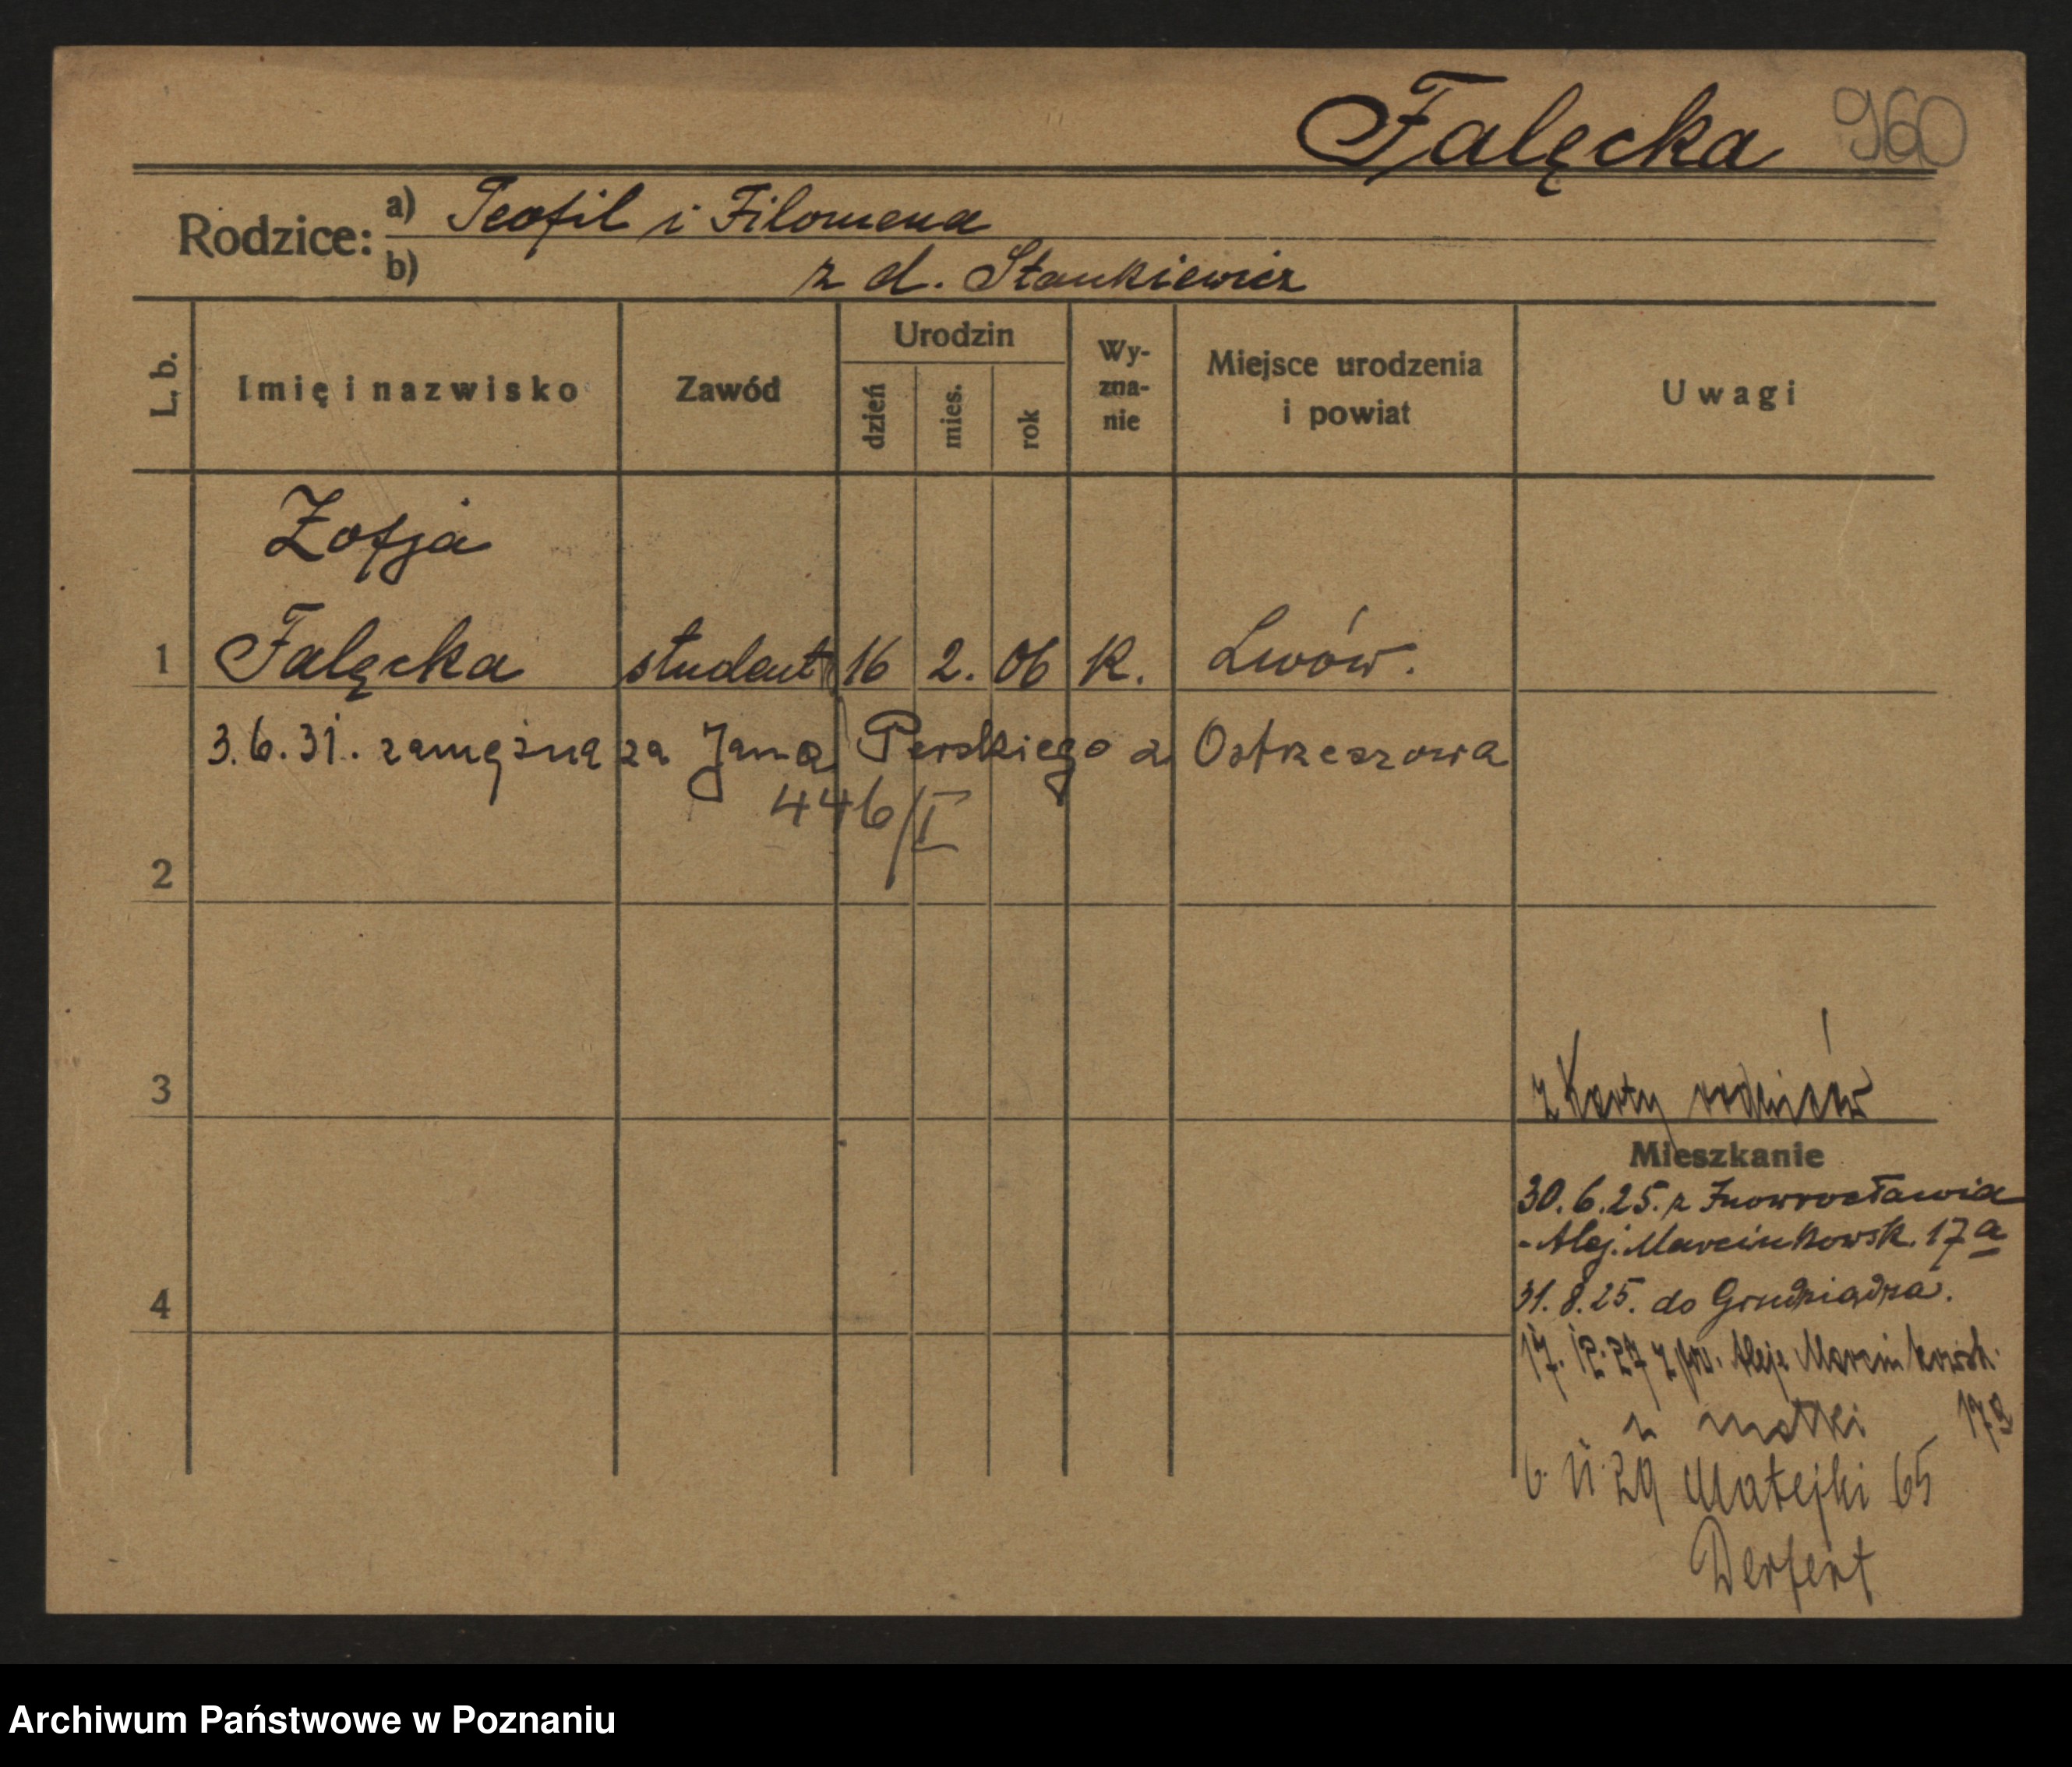 Falęcka 960
Rodzice: a) Teofil i Filomena
b) z d. Stankiewicz
L. b. Imię i nazwisko Zawód Urodzin dzień mies. rok Wy-zna-nie Miejsce urodzenia i powiat Uwagi
Zofja
1 Falęcka student 16 2. 06 K. Lwów.
3.6.31. zamężna za Jana Perskiego z Ostrzeszowa
446/I
2
3
z Karty rodziców
Mieszkanie
30.6.25. z Inowrocławia
- Alej. Marcinkowsk. 17a
4
31.8.25. do Grudziądza.
17.12.27 z pow. Aleje Marcinkowsk.
17a
u matki
6.11.29 Matejki 65
Derfert
Archiwum Państwowe w Poznaniu